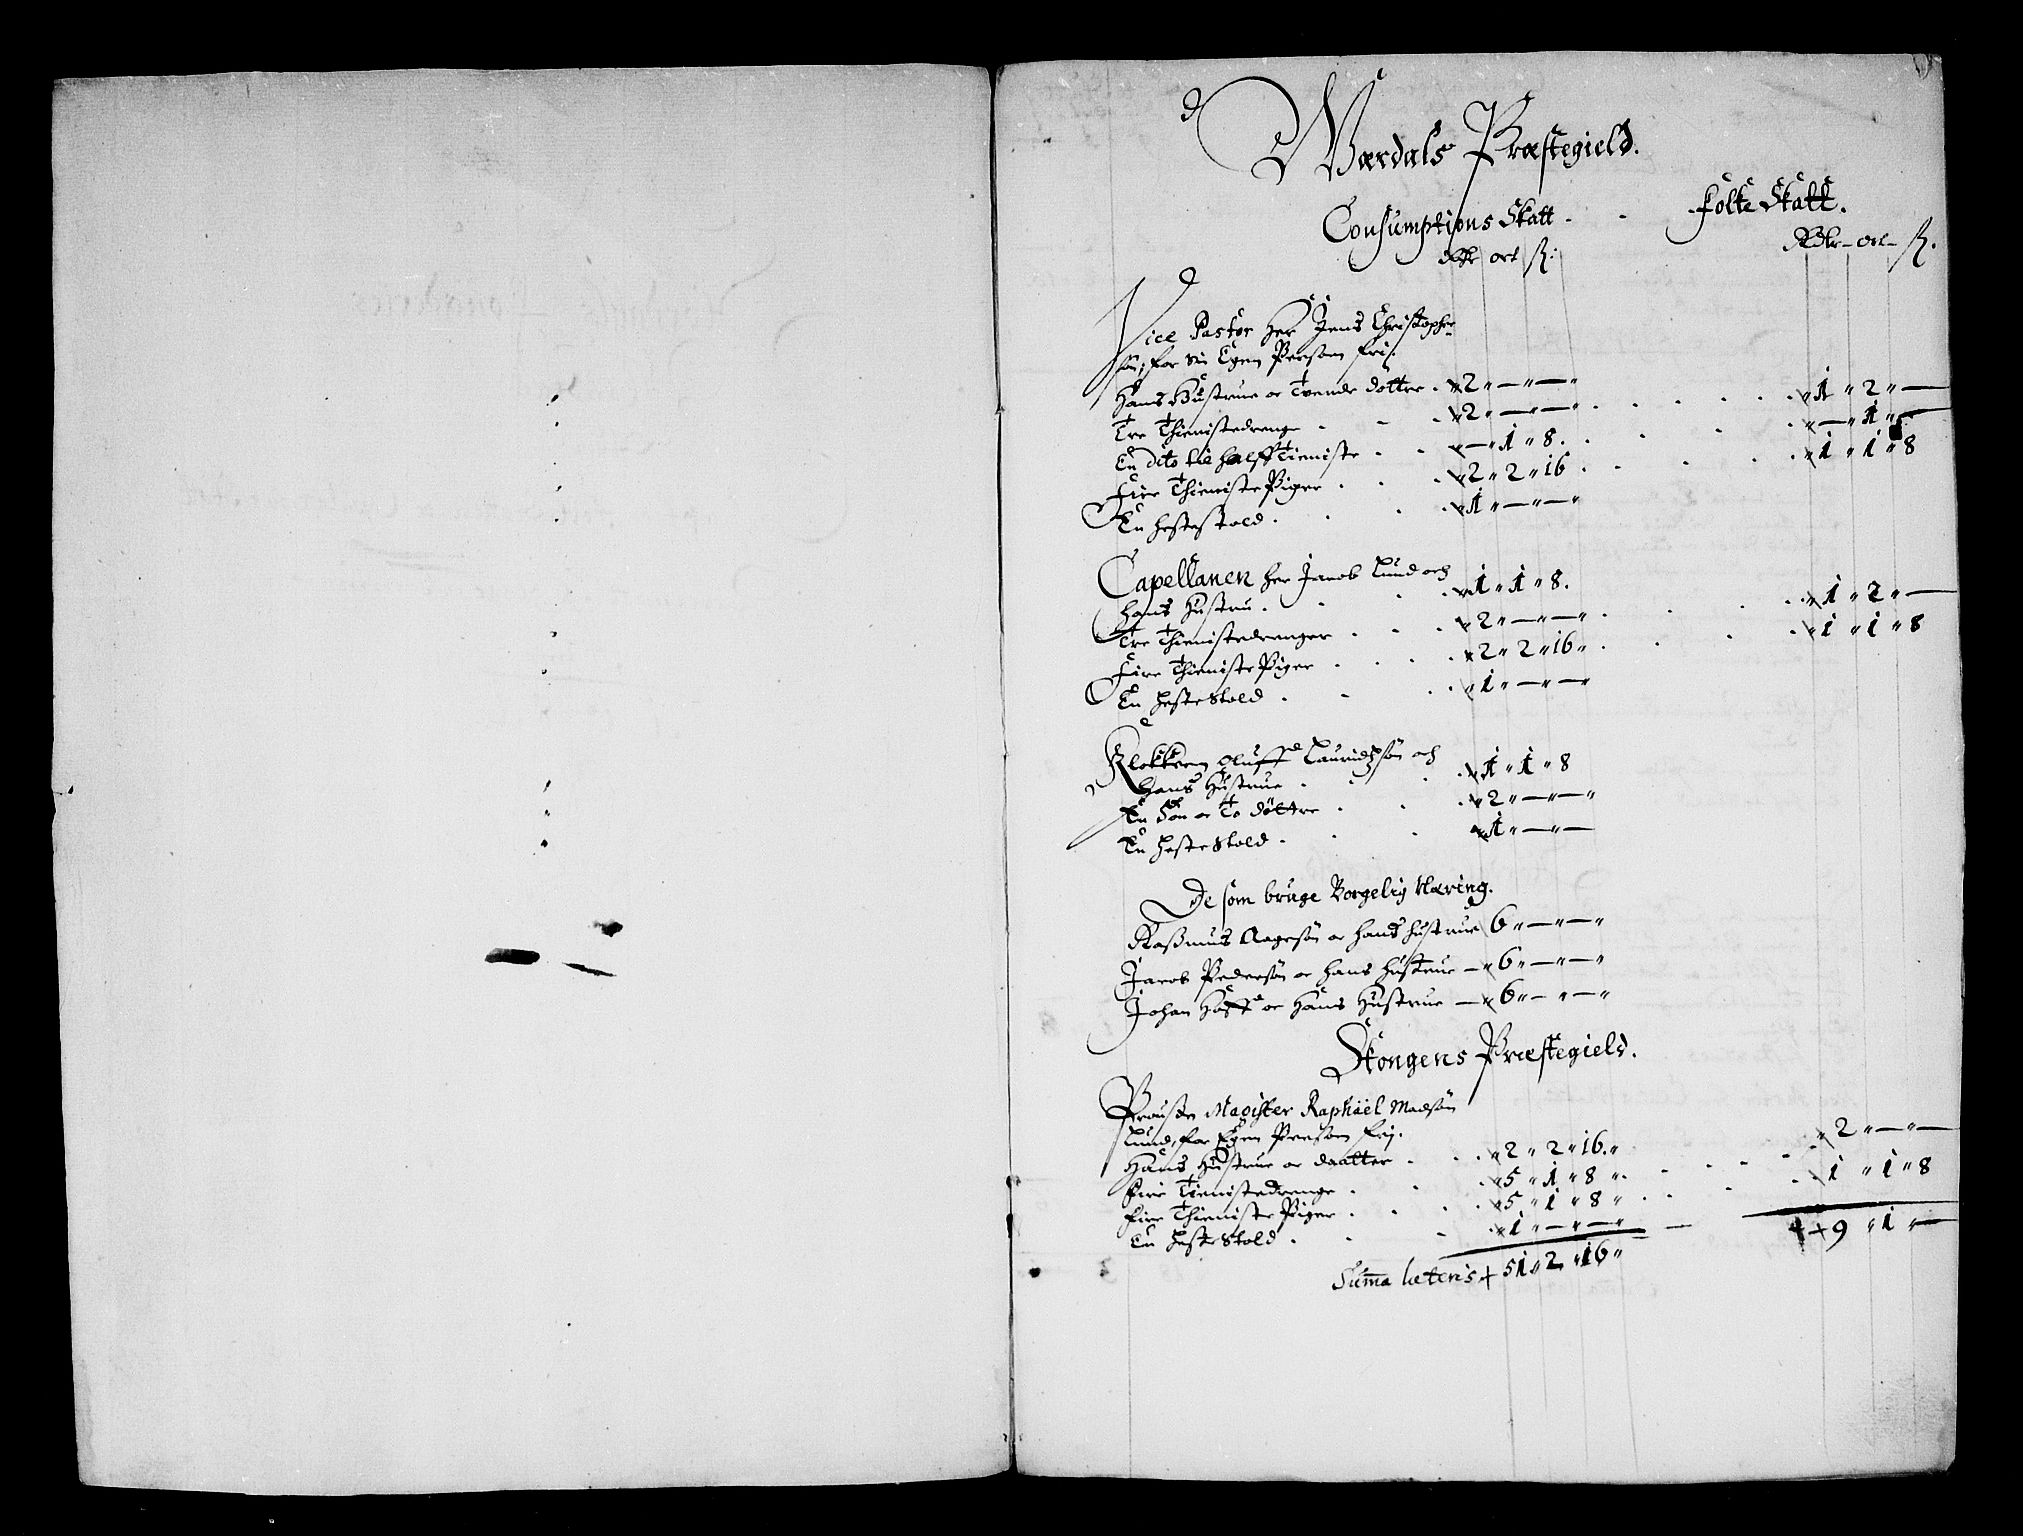 Wærdals Præstegield.
Consumptions Skatt - - Folke Skatt.
Rdlr ort ß. Rdlr - ort - ß.
Vice Pastor Her Jens Christopher
søn, for sin Egen Person frj.
Hans Hustrue oc Tvende døttre . 2 " — " — "
Tre Thienistedrenge . - - 2 " — " — " . . . . . 1 " 2 " —
En dito til halff Tieniste . . — " 1 " 8 . . . . — " 1 " —
Fire Thieniste Piger . . . 2 " 2 " 16 . . . . 1 " 1 " 8
En hestestold . . . 1 " — " — "
Capellanen her Jacob Lund och
hans Hustru . . . 1 " 1 " 8 .
Tre Thienistedrenger . . . 2 " — " — " . . . . 1 " 2 " —
Fire Thieniste Piger . . . . 2 " 2 " 16 " . . . 1 " 1 " 8
En hestestold . - . . 1 " — " — "
Klokkeren Oluff Lauridtzsøn och
Hans Hustrue . . . 1 " 1 " 8
En Søn oc To døttre . . . 2 " — " — "
En hestestold . . . 1 " — " —
De som bruge Borgelig Næring.
Rasmus Aagesøn oc hans hustrue 6 " — " — "
Jacob Pedersøn oc hans hustrue — " 6 " — " — "
Johan Hoff oc Hans Hustrue — " 6 " — " — "
Skongens Præstegield.
Prousten Magister Raphäel Madsøn
Lund, for Egen Person frj.
Hans Hustrue oc daatter . . . 2 " 2 " 16 . "
Fire Tienistedrenge . . . 5 " 1 " 8 " . . . . . 2 " — " —
Fire Thieniste Piger . . . . 5 " 1 " 8 " . . . . 1 " 1 " 8
En hestestold . . - . 1 " — " — " —
Summa lateris + 51 " 2 " 16 " + 9 " 1 " —